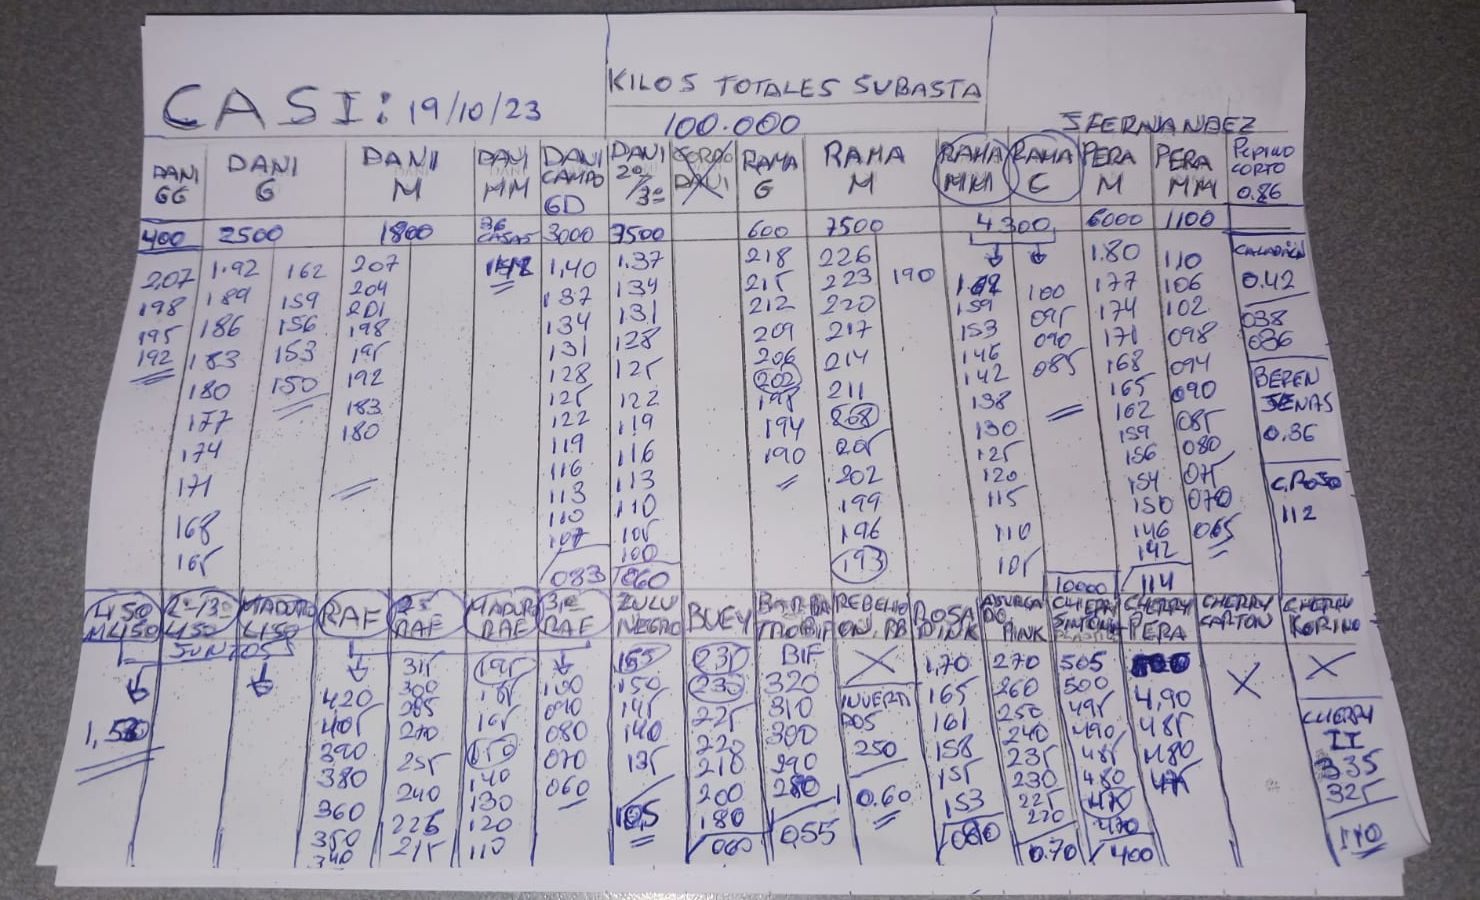 CASI: 19/10/23
KILOS TOTALES SUBASTA
100.000
J FERNANDEZ
DANI GG
400
207
198
195
192
DANI G
2500
1.92
189
186
183
180
177
174
171
168
165
162
159
156
153
150
DANI M
1800
207
204
201
198
195
192
183
180
DANI MM
36 CAJAS
DANI CAMPO GD
3000
1,40
137
134
131
128
125
122
119
116
113
110
107
083
DANI 2º/3º
7500
1.37
134
131
128
125
122
119
116
113
110
105
100
060
GORDO DANI
RAMA G
600
218
215
212
209
206
202
198
194
190
RAMA M
7500
226
223
220
217
214
211
208
205
202
199
196
193
190
RAMA MM
RAMA C
4300
159
153
146
142
138
130
125
120
115
110
105
100
095
090
085
PERA M
6000
1.80
177
174
171
168
165
162
159
156
154
150
146
142
114
PERA MM
1100
110
106
102
098
094
090
085
080
075
070
065
PEPINO CORTO
0.86
CALABACIN
0.42
038
036
BEREN
JENAS
0.36
C. ROJO
112
L450
ML450
2º/3º
L450
MADURO
L450
JUNTOS
RAF
420
405
390
380
360
350
340
2º
RAF
315
300
285
270
255
240
225
215
MADURO
RAF
195
165
150
140
130
120
110
3º
RAF
100
090
080
070
060
ZULU
NEGRO
155
150
145
140
135
105
BUEY
235
230
225
220
210
200
180
060
BARBA
TRO BIF
BIF
320
310
300
290
280
055
REBELIO
ON, RB
INVERTI
DOS
250
0.60
ROSA
PINK
1,70
165
161
158
155
153
080
ASURCA
DO, PINK
270
260
250
240
235
230
225
220
0.70
10000
CHERRY
505
500
495
490
485
480
470
400
CHERRY
PERA
4,90
485
480
475
CHERRY
CARTON
CHERRY
KORINO
CHERRY
II
335
325
110